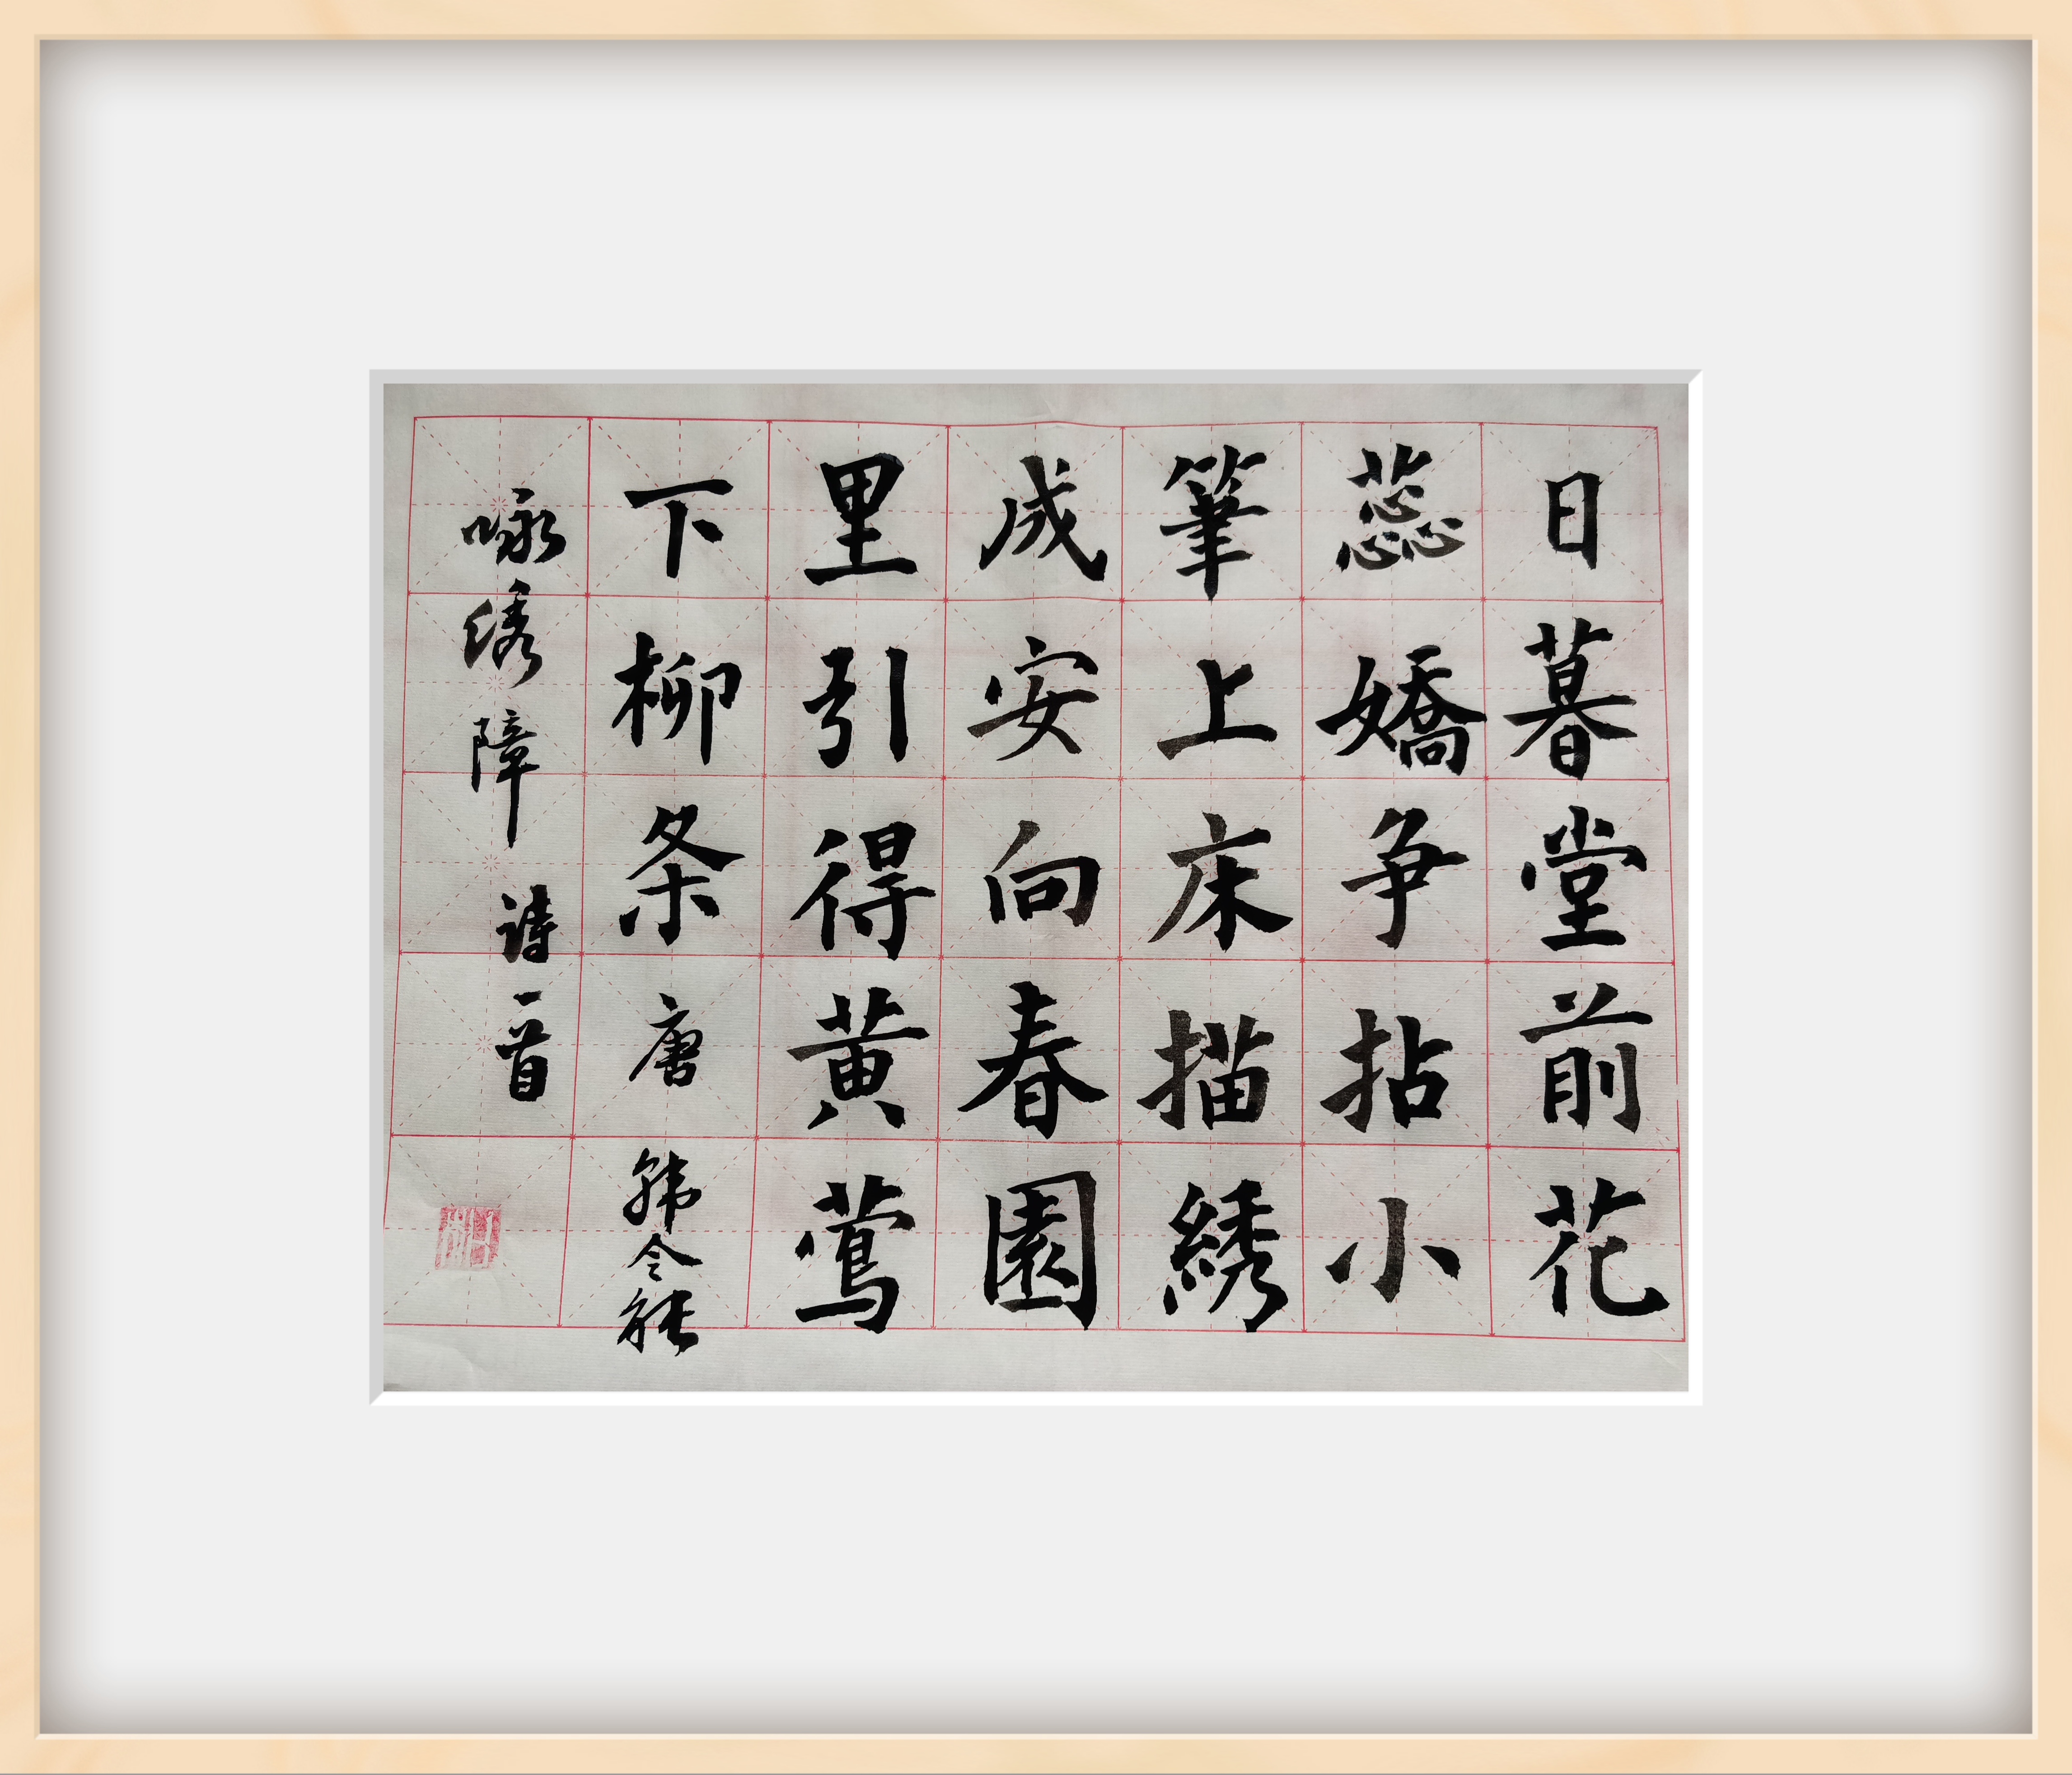 日暮堂前花
蕊嬌争拈小
筆上床描綉
成安向春園
里引得黄莺
下柳条 唐 韩令能
咏绣障 诗一首